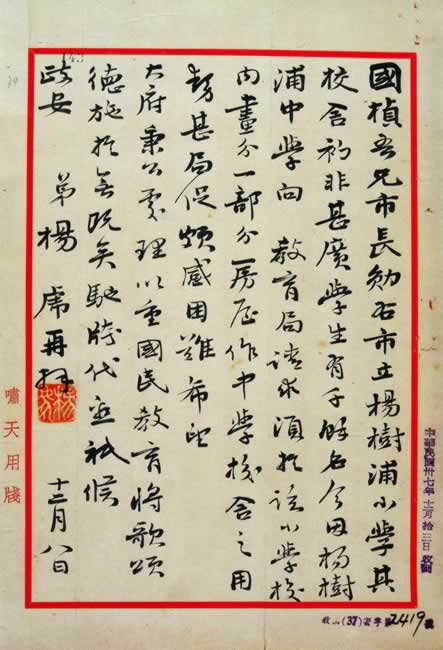 國楨吾兄市長勛右市立楊樹浦小學其
校舍初非甚廣學生有千餘名今因楊樹
浦中學向 教育局請求須於該小學校
內畫分一部分房屋作中學校舍之用
勢甚局促頗感困難希望
大府秉公處理以重國民教育將歌頌
德施於無既矣馳牋代面祗候
政安 弟楊虎再拜
十二月八日
嘯天用牋
中華民國卅七年十二月拾三日收到
(37) 字第2419號